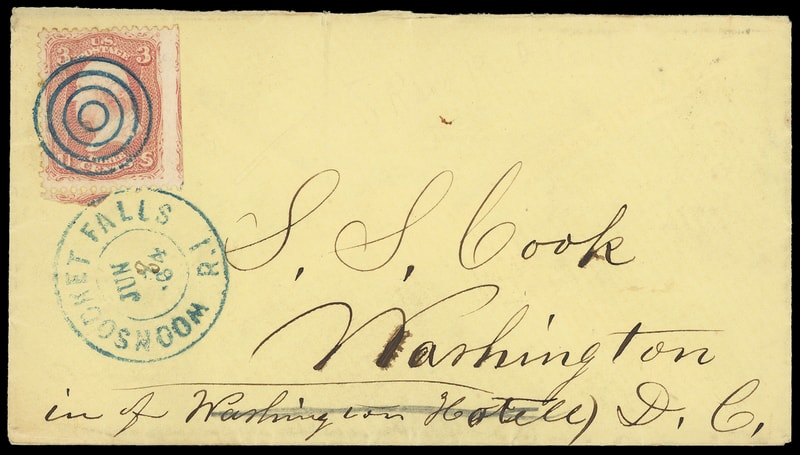 3 U.S. 3
POSTAGE
CENTS
WOONSOCKET FALLS R.I.
JUN
8
'64
S. S. Cook
Washington
in of Washington Hotell) D. C.